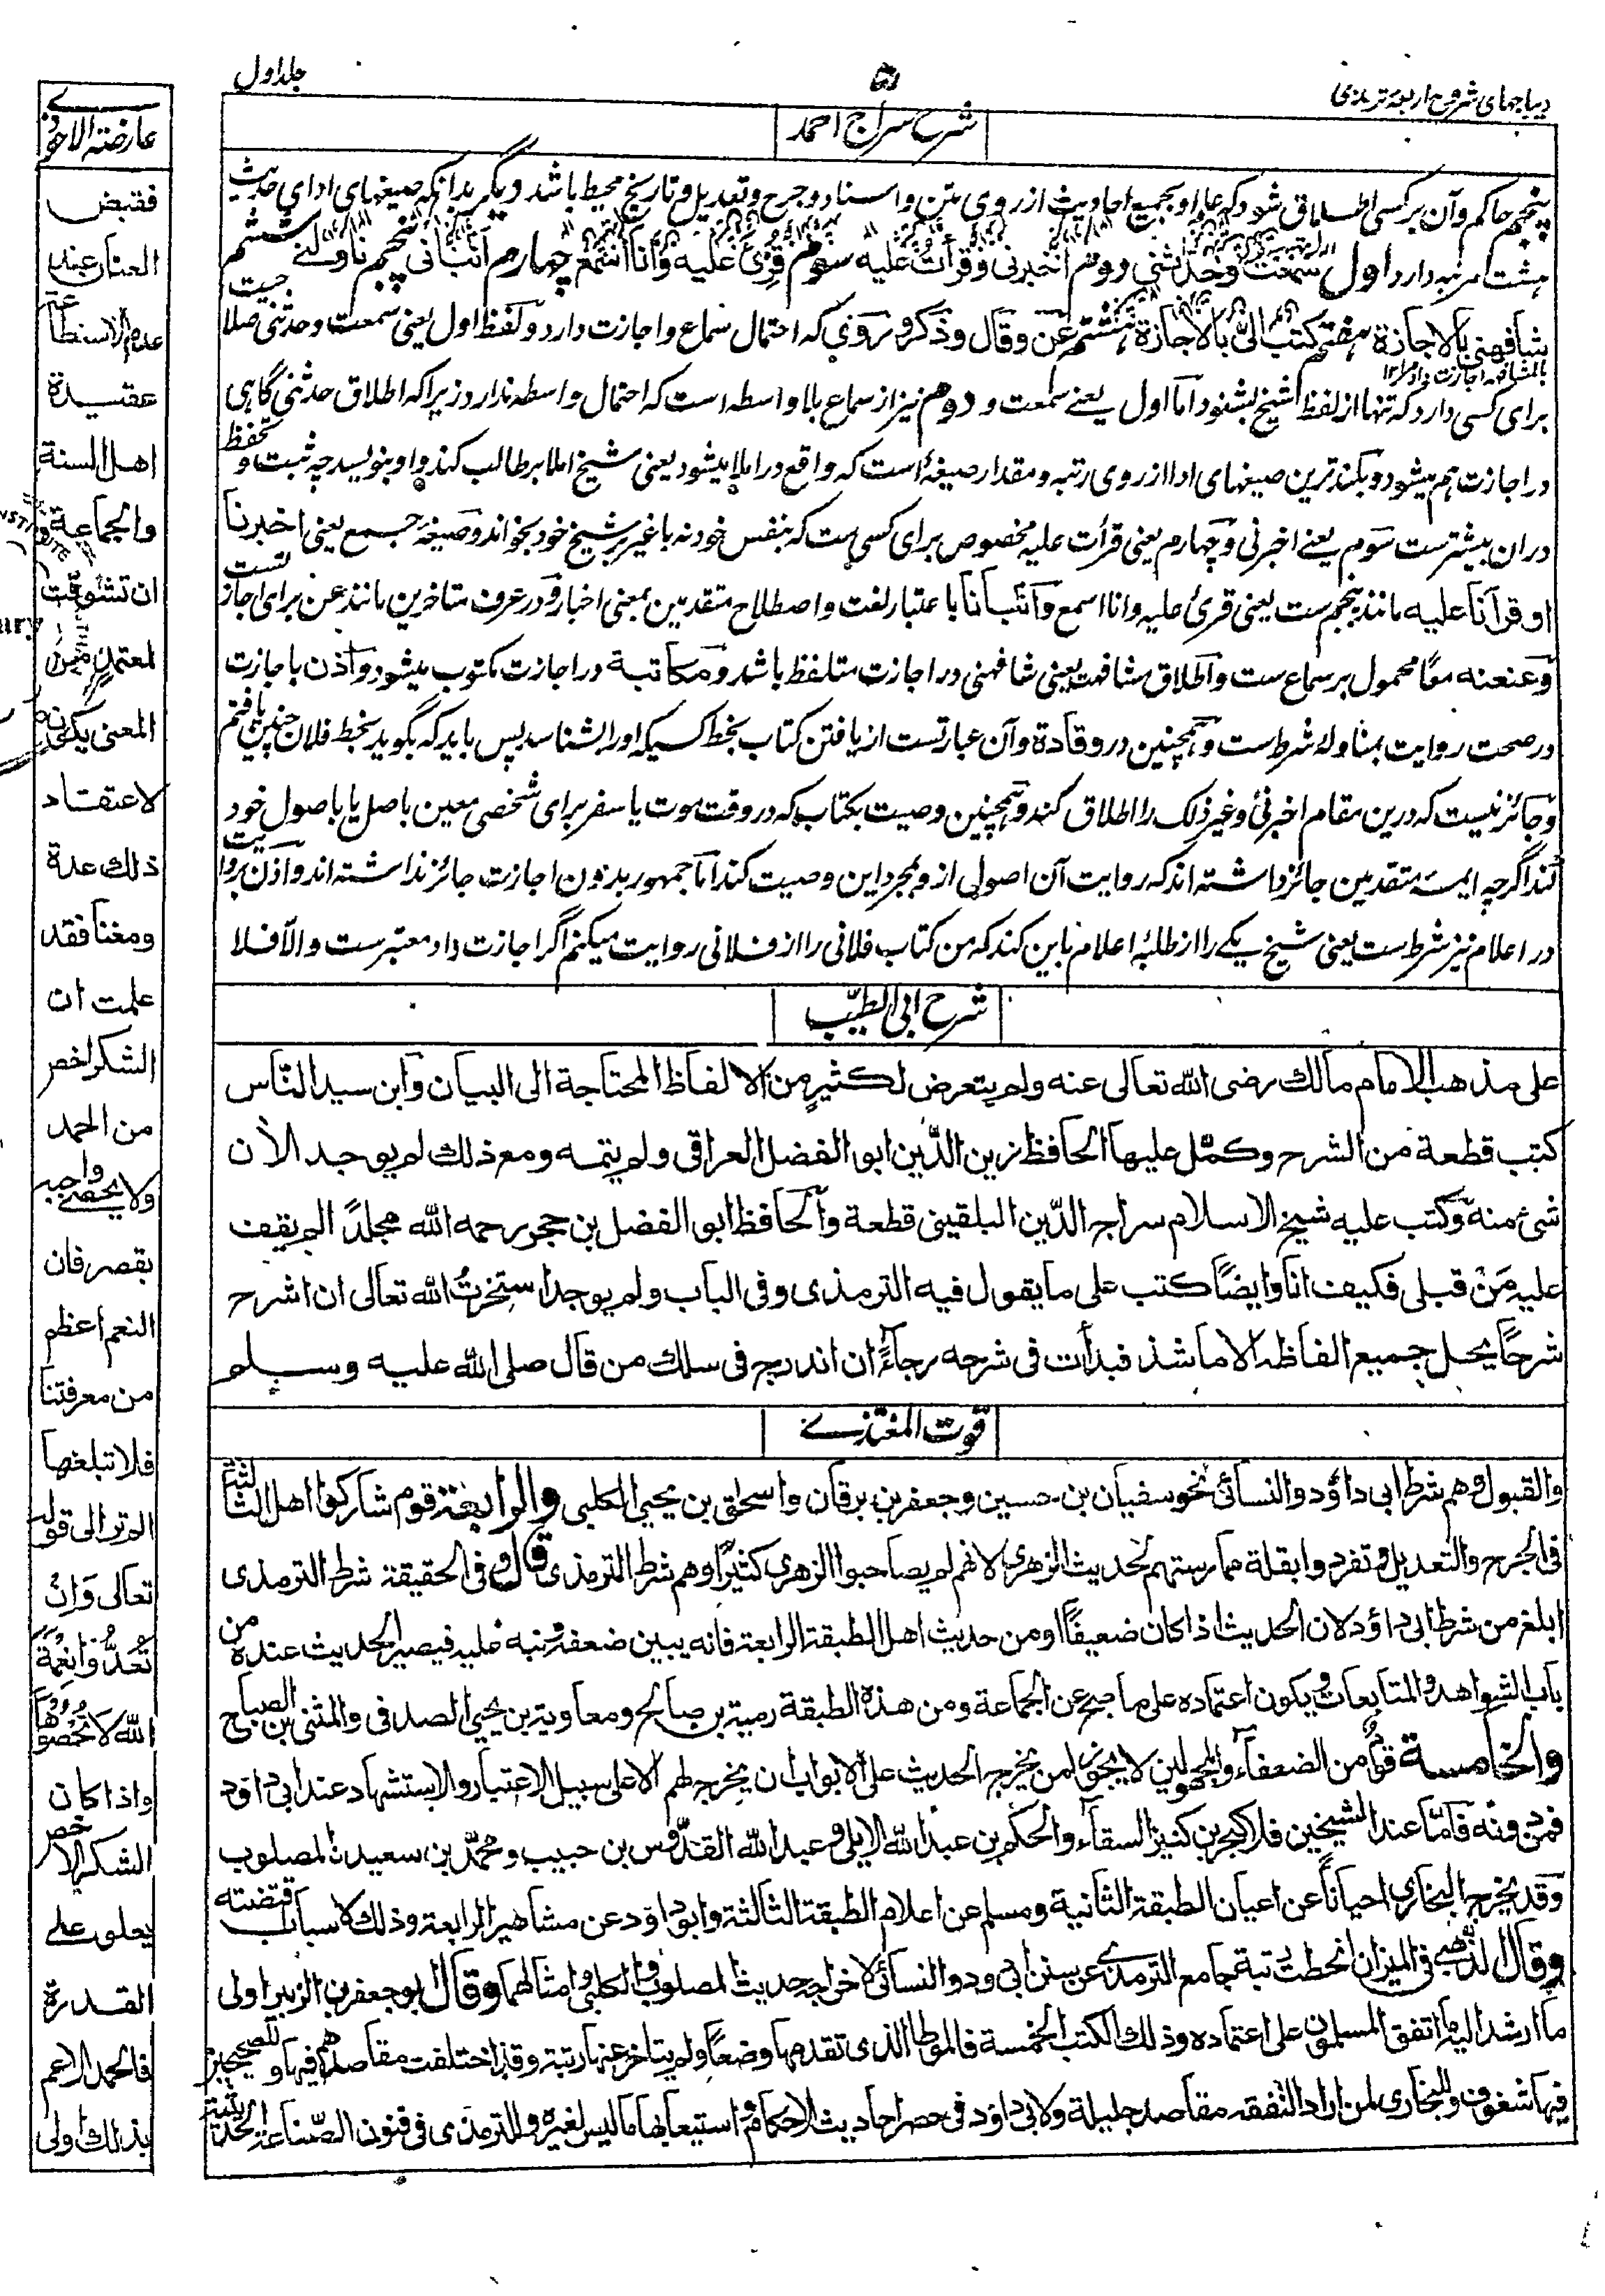 دیباجهای شروح اربعه ترمذی
۵
جلد اول
شرح سراج احمد
پنجم حاکم و آن بر کسی اطلاق شود که علم او بجمیع احادیث از روی متن و اسناد و جرح و تعدیل و تاریخ محیط باشد و دیگر بدانکه صیغهای ادای حدیث
هشت مرتبه دارد اول سمعت و حدثنی دوم اخبرنی و قرأت علیه سوم قرئ علیه و انا اسمع چهارم انبانی پنجم ناولنی ششم
شافهنی بالاجازة هفتم کتب الیّ بالاجازة هشتم عن و قال و ذکر و روی که احتمال سماع و اجازت دارد و لفظ اول یعنی سمعت و حدثنی صلاحیت
بالمشافهه اجازت داد مرا ۱۲
برای کسی دارد که تنها از لفظ شیخ بشنود اما اول یعنے سمعت و دوم نیز از سماع بلا واسطه است که احتمال واسطه ندارد زیرا که اطلاق حدثنی گاهی
در اجازت هم میشود و بلند ترین صیغهای ادا از روی رتبه و مقدار صیغهٔ است که واقع در املا میشود یعنی شیخ املا بر طالب کند و او بنویسد چه ثبت و تحفظ
دران بیشترست سوم یعنے اخبرنی و چهارم یعنی قرأت علیه مخصوص برای کسی ست که بنفس خود نه با غیر بر شیخ خود بخواند و صیغهٔ جمع یعنی اخبرنا
او قرأنا علیه مانند پنجم ست یعنی قرئ علیه و انا اسمع و انبانا باعتبار لغت و اصطلاح متقدمین بمعنی اخبار و در عرف متاخرین مانند عن برای اجازتست
و عنعنه معًا محمول بر سماع ست و اطلاق مشافهت یعنی شافهنی در اجازت متلفظ باشد و مکاتبة در اجازت مکتوب میشود و اذن باجازت
در صحت روایت بمناوله شرط ست و همچنین در وقادة و آن عبارتست از یافتن کتاب بخط کسیکه او را بشناسد پس باید که بگوید بخط فلان چنین یافتم
و جائز نیست که درین مقام اخبرنی و غیر ذلک را اطلاق کند و همچنین وصیت بکتاب که در وقت موت یا سفر برای شخصی معین باصل یا باصول خود
کند اگرچه ایمهٔ متقدمین جائز داشته اند که روایت آن اصولی ازو بمجرد این وصیت کند اما جمهور بدون اجازت جائز نداشته اند و اذن بروایت
در اعلام نیز شرط ست یعنی شیخ یکے را از طلبهٔ اعلام باین کند که من کتاب فلانی را از فلانی روایت میکنم اگر اجازت داد معتبرست و الّا فلا
شرح ابی الطیّب
علی مذهب الامام مالک رضی الله تعالی عنه ولم یتعرض لکثیرٍ من الالفاظ المحتاجة الی البیان وابن سید النّاس
کتب قطعة من الشرح وکمّل علیها الحافظ زین الدّین ابو الفضل العراقی ولم یتمه ومع ذلک لم یوجد الأن
شیء منه وکتب علیه شیخ الاسلام سراج الدّین البلقینی قطعة والحافظ ابو الفضل بن حجر رحمه الله مجلدًا لم یقف
علیه مَنْ قبلی فکیف انا وایضًا کتب علی ما یقول فیه الترمذی وفی الباب ولم یوجد استخرتُ الله تعالی ان اشرح
شرحًا یحل جمیع الفاظه الا ما شذ فبدأت فی شرحه رجاءً ان اندرج فی سلک من قال صلی الله علیه وسلم
قوت المغتذے
والقبول وهم شرط ابی داؤد والنسائی نحو سفیان بن حسین وجعفر بن برقان واسحق بن یحیی الکلبی والرابعة قوم شارکوا اهل الثالثة
فی الجرح والتعدیل وتفردوا بقلة ممارستهم لحدیث الزهری لانهم لم یصاحبوا الزهری کثیرًا وهم شرط الترمذی قال وفی الحقیقة شرط الترمذی
ابلغ من شرط ابی داؤد لان الحدیث اذا کان ضعیفًا او من حدیث اهل الطبقة الرابعة فانه یبین ضعفه وینبه علیه فیصیر الحدیث عنده من
باب الشواهد والمتابعات ویکون اعتماده علی ما صح عن الجماعة ومن هذه الطبقة زمعة بن صالح ومعاویة بن یحیی الصدفی والمثنی بن الصباح
والخامسة قومٌ من الضعفاء والمجهولین لا یجوز لمن یخرج الحدیث علی الابواب ان یخرج لهم الا علی سبیل الاعتبار والاستشهاد عند ابی داؤد
فمن دونه فامّا عند الشیخین فلا کبحر بن کنیز السقاء والحکم بن عبد الله الایلی وعبد الله القدّوس بن حبیب ومحمّد بن سعید المصلوب
وقد یخرج البخاری احیانًا عن اعیان الطبقة الثانیة ومسلم عن اعلام الطبقة الثالثة وابو داؤد عن مشاهیر الرابعة وذلک لاسباب اقتضته
وقال الذهبی فی المیزان انحطت رتبة جامع الترمذی عن سنن ابی داود والنسائی لاخراجه حدیث المصلوب والکلبی وامثالهما وقال ابو جعفر بن الزبیر اولی
ما ارشد الیه ما اتفق المسلمون علی اعتماده وذلک الکتب الخمسة فالموطا الذی تقدمها وضعًا ولم یتاخر عنها رتبة وقد اختلفت مقاصدهم فیها وللصحیحین
فیها شغوف وللبخاری لمن اراد التفقه مقاصد جلیلة ولابی داؤد فی حصر احادیث الاحکام واستیعابها ما لیس لغیره وللترمذی فی فنون الصّناعة الحدیثیة
عارضة الاحوذے
فقبض
العنان عند
عدم الاستطا
عة
عقیدة
اهل السنة
والجماعة و
ان تشوقت
لمعتمد من
المعنی یکون
لاعتقاد
ذلک عدة
ومغنا فقد
علمت ان
الشکر اخص
من الحمد
واجب
ولا یحصے
بقصر فان
النعم اعظم
من معرفتنا
فلا تبلغها
الم تر الی قوله
تعالی وَاِنْ
تَعُدُّوا نِعْمَةَ
الله لَا تُحْصُوْهَا
واذا کان
الشکر الاخص
یعلو علی
القدرة
فالحمد الاعم
بذلک اولی